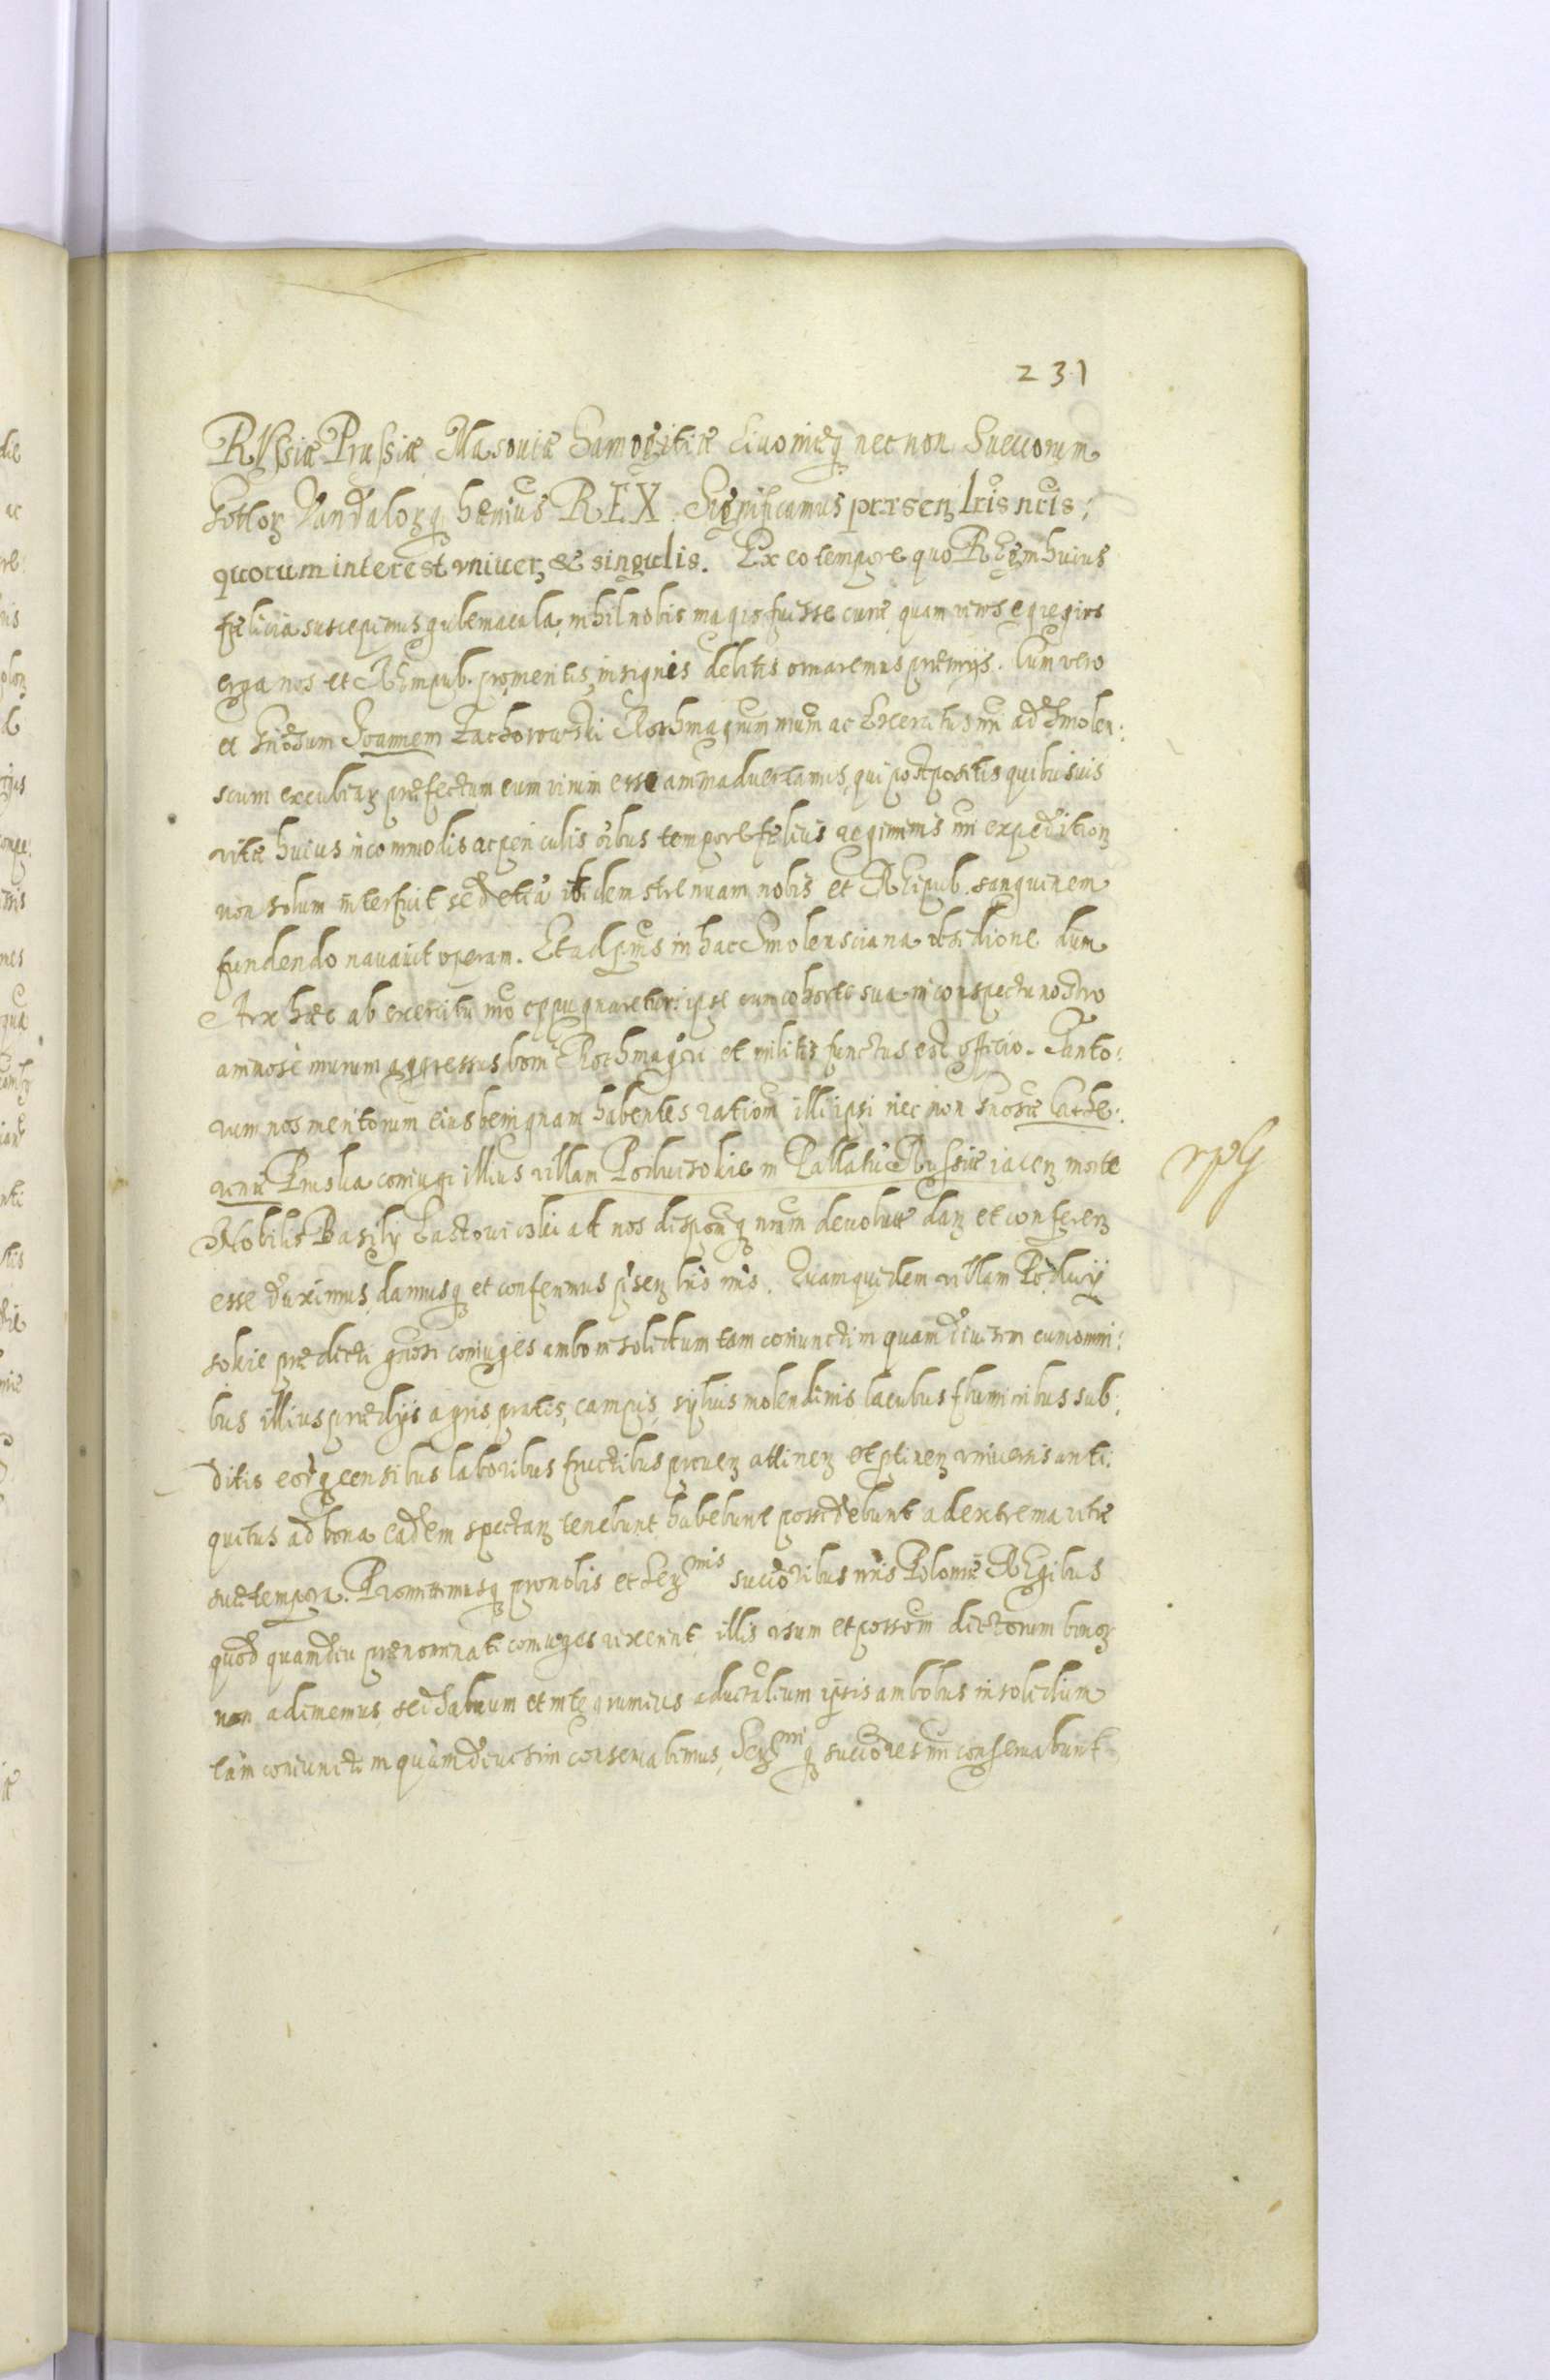 231
Rußiæ Prußiæ Masouiæ Samogitiæ Liuoniæq nec non Sueuorum
Gottorꝫ Vandalorꝫq hæriús REX. Significamus præsenꝫ lris nris:
quorum interest vniuerꝫ & singulis. Ex eo tempore quo Regnm huius
fælicia suscepimus gubernacula, nihil nobis magis fuisse curæ quam viros egregios
erga nos et Rempub. promeritos, insignis debitis ornaremus præmijs. Cum vero
et Gnosum Joannem Zachorowski Rothmagrum nrum ac Exercitus nri ad Smolen:
scum excubiarꝫ præfectum eum virum esse animaduertamus, qui postpositis quibusuis
vitæ huius incommodis ac periculis oibus tempore fælicis regiminis nri expeditionꝫ
non solum interfuit, sed etiā ibidem strenuam nobis et Reipub. sanguinem
fundendo nauauit operam. Et ad pns in hac Smolensciana obsidione dum
Arx hæc ab exercitu nro expugnaretur: ipse cum cohorte sua in conspectu nostro
animose murum aggressus boni Rothmagri et militis functus est officio. Tanto:
rum nos meritorum eius benignam habentes rationem illi ipsi nec non Gnosæ Cathe:
rinæ Pruska coniugi illius villam Podwisokie in Pallatū Rußiæ iacenꝫ morte
Nobilis Basilij Lastowiecki ad nos disponemq nram deuolutā danꝫ et conferenꝫ
esse duximus, damusq et conferimus pnsenꝫ lris nris. Quam quidem villam Podwij
sokie prædicti gnosi coniuges ambo in solidum tam coniunctim quam diuisim cum omni:
bus illius prædijs agris, pratis, campis, syluis molendinis lacubus fluminibus sub:
ditis eorq censibus laboribus fructibus prouenꝫ attinenꝫ et ptinenꝫ vniuersis anti:
quitus ad bona eadem spectanꝫ tenebunt habebunt possidebunt ad extrema vitæ
suæ tempora. Promittimusq pro nobis et Serꝫmis succoribus nris Poloniæ Regibus
quod quamdiu prænominati coniuges vixerint, illis vsum et possem dictorum bonorꝫ
non adimemus, sed saluum et integrum ius aduitalitium ipsis ambobus in solidum
tam coniunctim quam diuisim conseruabimus, Serꝫmiq succores nri conseruabunt